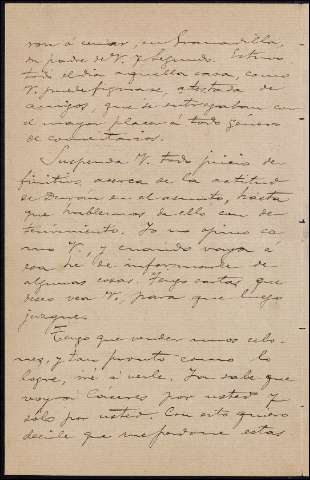 ron á cenar, en Granadilla,
su padre de V. y Segundo. Estuvo
todo el día aquella casa, como
V. puede figurarse, atestada de
amigos, que se entregaban con
el mayor placer á todo género
de comentarios.
Suspenda V. todo juicio de-
finitivo acerca de la actitud
de Durán en el asunto, hasta
que hablemos de ello con de-
tenimiento. Yo no opino co-
mo V., y cuando vaya á
esa he de informarle de
algunas cosas. Tengo cartas que
deseo vea V., para que luego
juzgue.
Tengo que vender unos
y tan pronto como lo
logre, iré á verle. Ya sabe que
voy á Cáceres por usted y
sólo por usted. Con esto quiero
decirle que me perdone estas